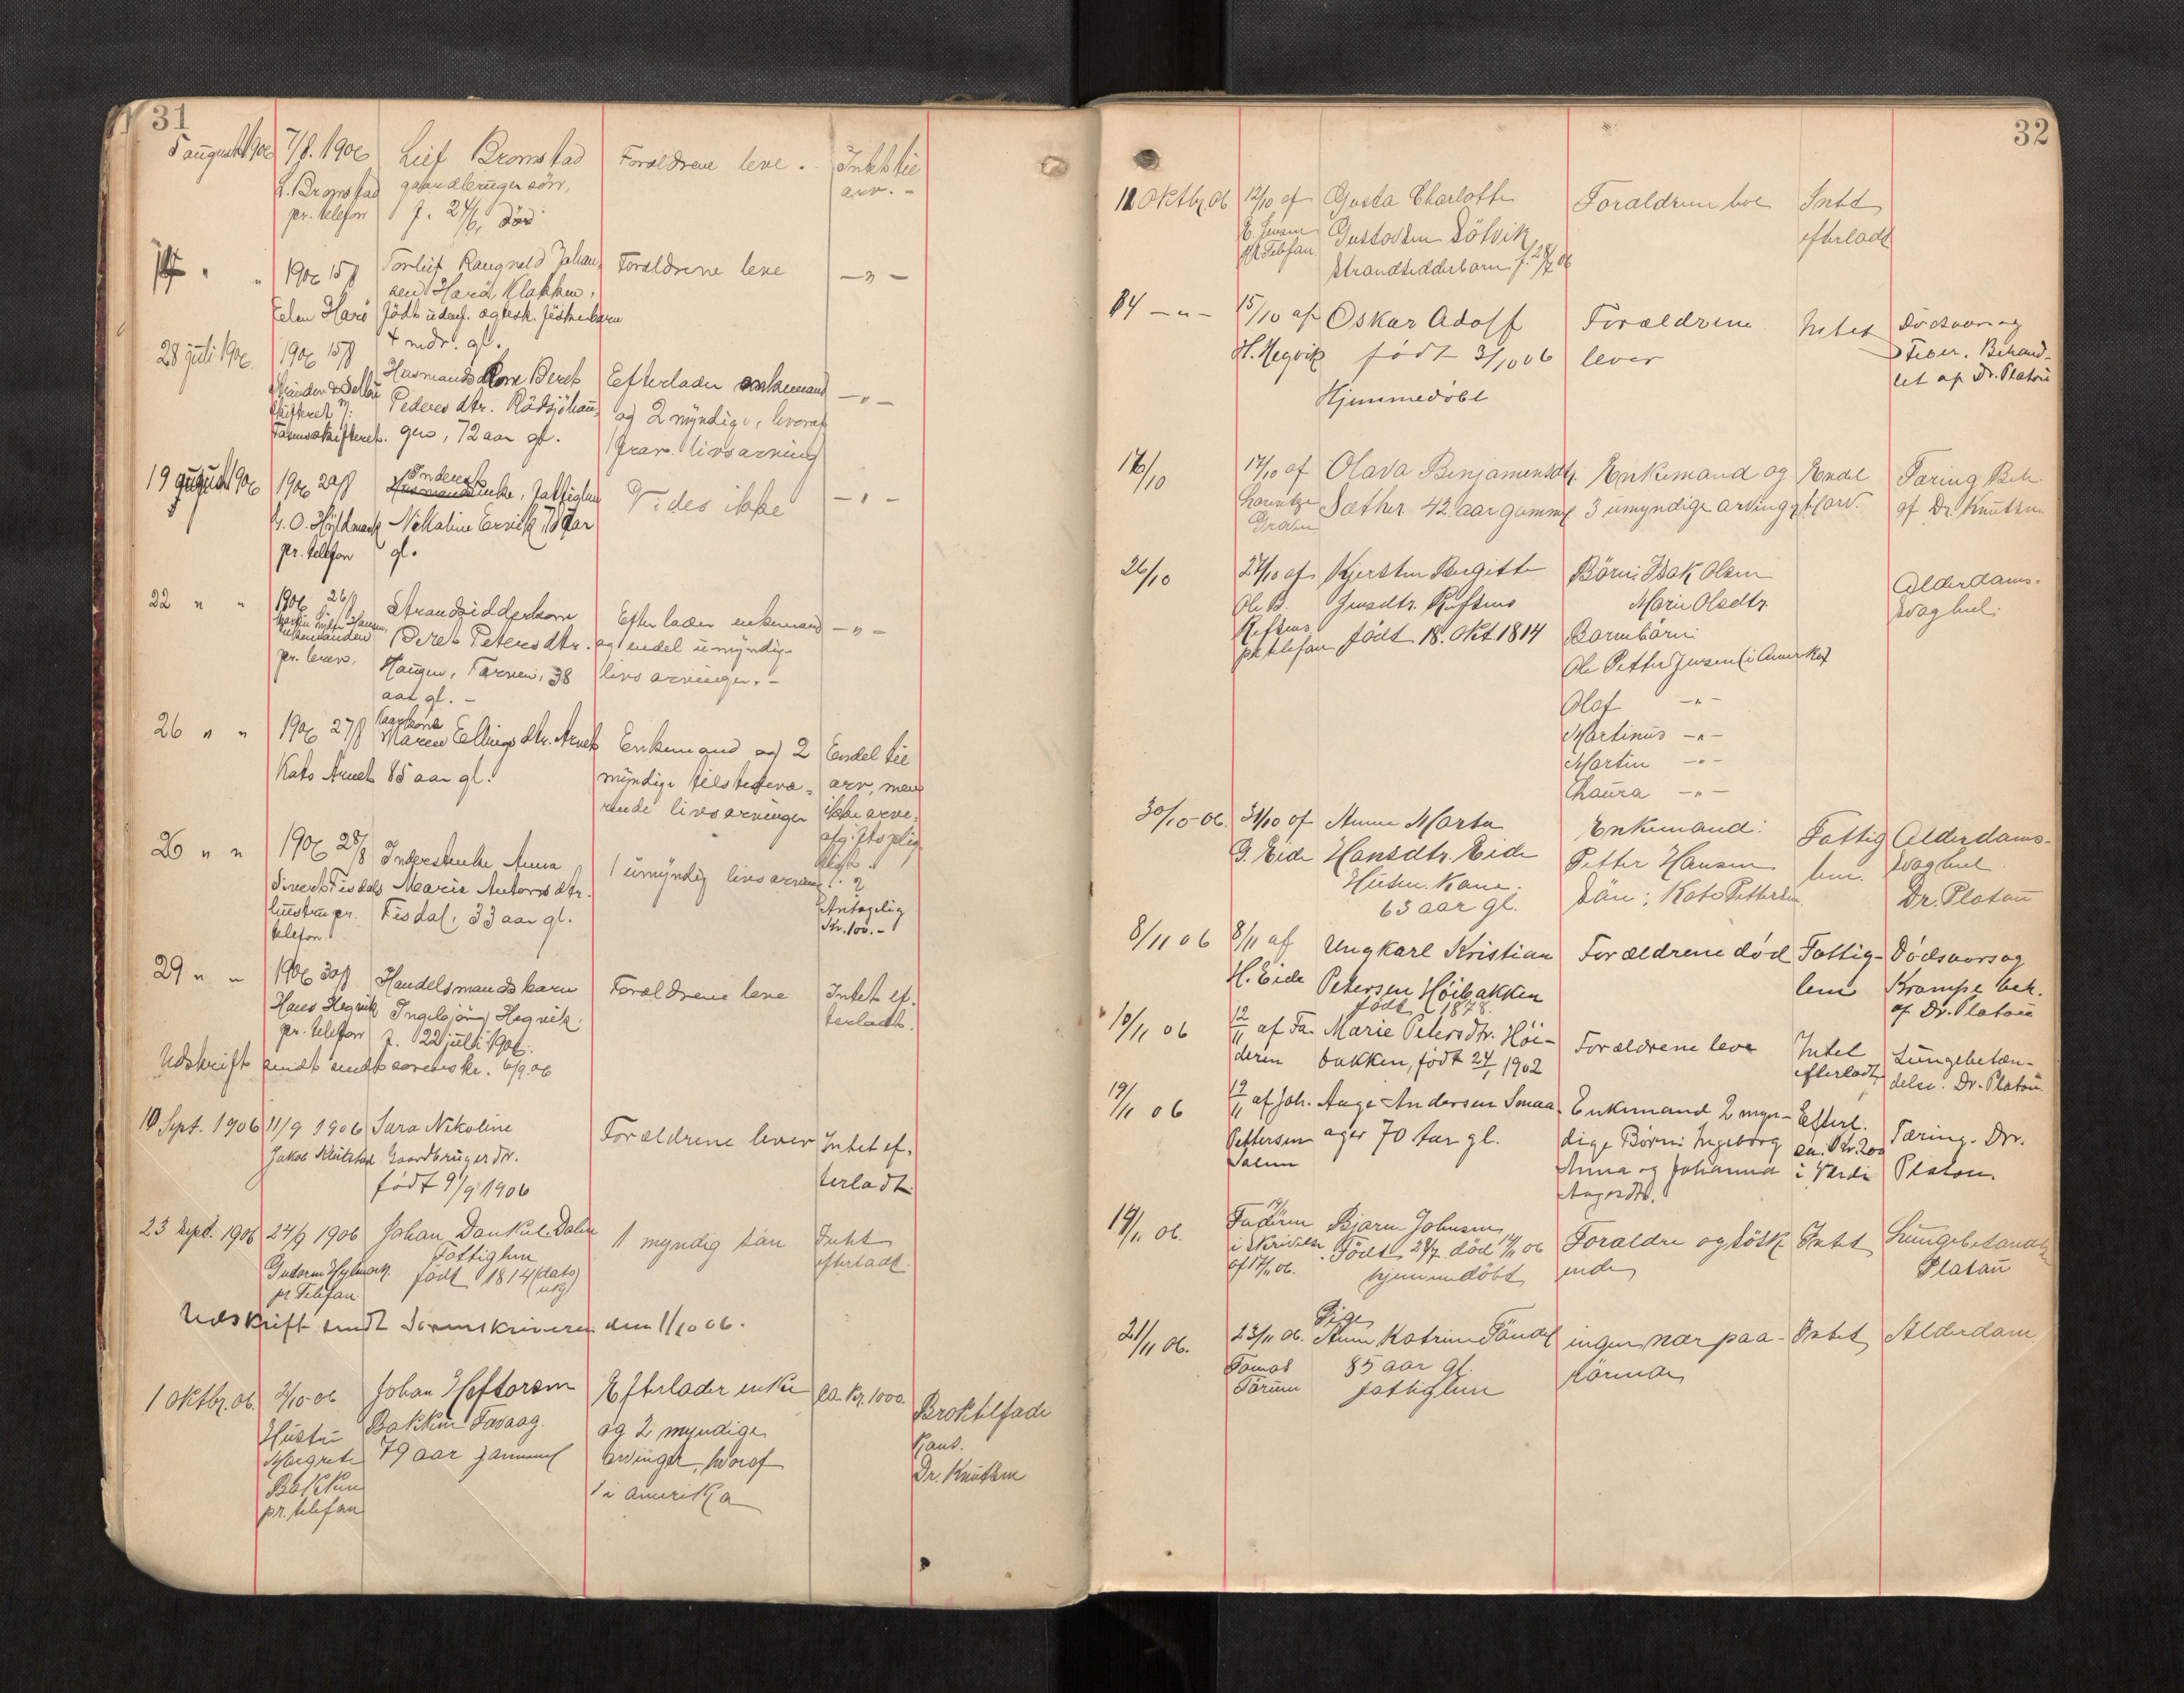 31
5 august 1906 7/8. 1906 Leif Bromstad Forældrene leve. Intet til
L. Bromstad gaardbruger sön, arv. -
pr. telefon f. 24/6, död
" " 1906 15/8 Torleif Raugnald Johan Forældrene leve - " -
sen Harö Klakken,
Edm Harö födt udenf. ægtesk. fiskerbarn
4 mdr. gl.
28 juli 1906 1906 15/8 Husmandskone Beret Efterlader enkemand - " -
Pedersdtr. Rödsjöhau- og 2 myndige, hvoraf
gen, 72 aar gl. livsarving
19 august 1906 1906 20/8 Inderst
enke, Fattiglem Vides ikke - " -
Nikaline Ervik 78 aar
pr. telefon gl.
22 " " 1906 26/8 Strandsidderkone Efterlader enkemand - " -
enkemanden Beret Petersdtr. og endel umyndige
pr. brev. Haugen, Tarven, 38 livsarvinger. -
aar gl. -
26 " " 1906 27/8 Kaarkone
Maren Ellingsdtr. Arnet Enkemand og 2 Endel til
Kato Arnet 85 aar gl. myndige tilstedevæ- arv, men
rende livsarvinger ikke arve-
afgiftsplig
26 " " 1906 28/8 Inderstenke Anna 1 umyndig livsarving
Sivert Fisdals Marie Antonsdtr.
hustru pr. Fisdal, 33 aar gl. Antagelig
telefon. Kr. 100. -
29 " " 1906 30/8 Handelsmandsbarn Forældrene leve Intet ef-
Hans Hegvik Ingebjörg Hegvik. terladt.
pr. telefon f. 22 juli 1906.
Udskrift sendt sorenskr. 6/9. 06
10 Sept. 1906 11/9 1906 Sara Nikoline Forældrene lever Intet ef-
Jakob Gaardbruger dtr. terladt.
født 9/9 1906
23 Sept. 1906 24/9 1906 Johan Dankel Dalen 1 myndig sön Intet
Fattiglem efterladt.
Gudorm født 1814 (dato
pr Telefon
Udskrift sendt Sorenskriveren den 1/10 06.
1 Oktbr. 06. 2/10-06 Johan Heftorsen Efterlader enke ca. Kr. 1000.
Hustru Bakken Tavaag. og 2 myndige Broktilfælde
Margrete 79 aar gammel arvinger, hvoraf
Bakken 1 i Amerika Dr. Knutsen
pr. telefon
32
11 Oktbr. 06 12/10 af Gusta Charlotte Forældrene leve Intet
E. Jensen Gustavsen Sötvik efterladt
pr Telefon Strandsidderbarn f. 28/7 06
14 - " - 15/10 af Oskar Adolf Forældrene Intet Dødsaarsag
H. Hegvik født 3/10 06 lever Feber. Behand-
Hjemmedøbt let af Dr. Platou
16/10 17/10 af Olava Benjaminsdtr. Enkemand og Endel Tæring Beh
Lorentze Sæther 42 aar gammel 3 umyndige arvinger t/arv. af Dr. Knutsen
Gravem
26/10 27/10 af Kjersten Birgitte Börn: Isak Olsen Alderdoms-
Ole B. Jensdtr. Refsnes Marie Olsdtr. svaghed.
Refsnes født 18. Okt 1814 Barnebörn:
pr telefon Ole Petter Jensen (i Amerika)
Olaf - " -
Martinus - " -
Martin - " -
Thaura - " -
30/10-06. 31/10 af Anne Marta Enkemand: Fattig Alderdoms-
G. Eide Hansdtr. Eide Petter Hansen lem. svaghed
Husm. Kone. Sön: Kato Pettersen. Dr. Platou
63 aar gl.
8/11 06 8/11 af Ungkarl Kristian Forældrene död Fattig- Dødsaarsag
H. Eide Petersen Höibakken lem Krampe beh.
født 1878. af Dr. Platou
10/11 06 12/11 af Fa- Marie Petersdtr. Höi- Forældrene leve Intet Lungebetæn-
deren bakken, født 24/1 1902 efterladt delse. Dr. Platou
19/11 06 19/11 af Joh. Aage Andersen Smaa- Enkemand 2 myn- Efterl. Tæring. Dr.
Pettersen ager 70 aar gl. dige Börn: Ingeborg ca. Kr. 200 Platou.
Anna og Johanna i Værdi
Aagesdtr.
19/11 06. 19/11
Faderen Bjarne Johnsen Forældre og söske Intet Lungebetændelse
i skrivelse Født 28/7 död 14/11 06 ende Platou
af 17/11 06. hjemmedöbt
21/11 06. 23/11 06. Pige
Anne Katrine ingen nær paa- Intet Alderdom.
Tomas 85 aar gl. rörende
fattiglem